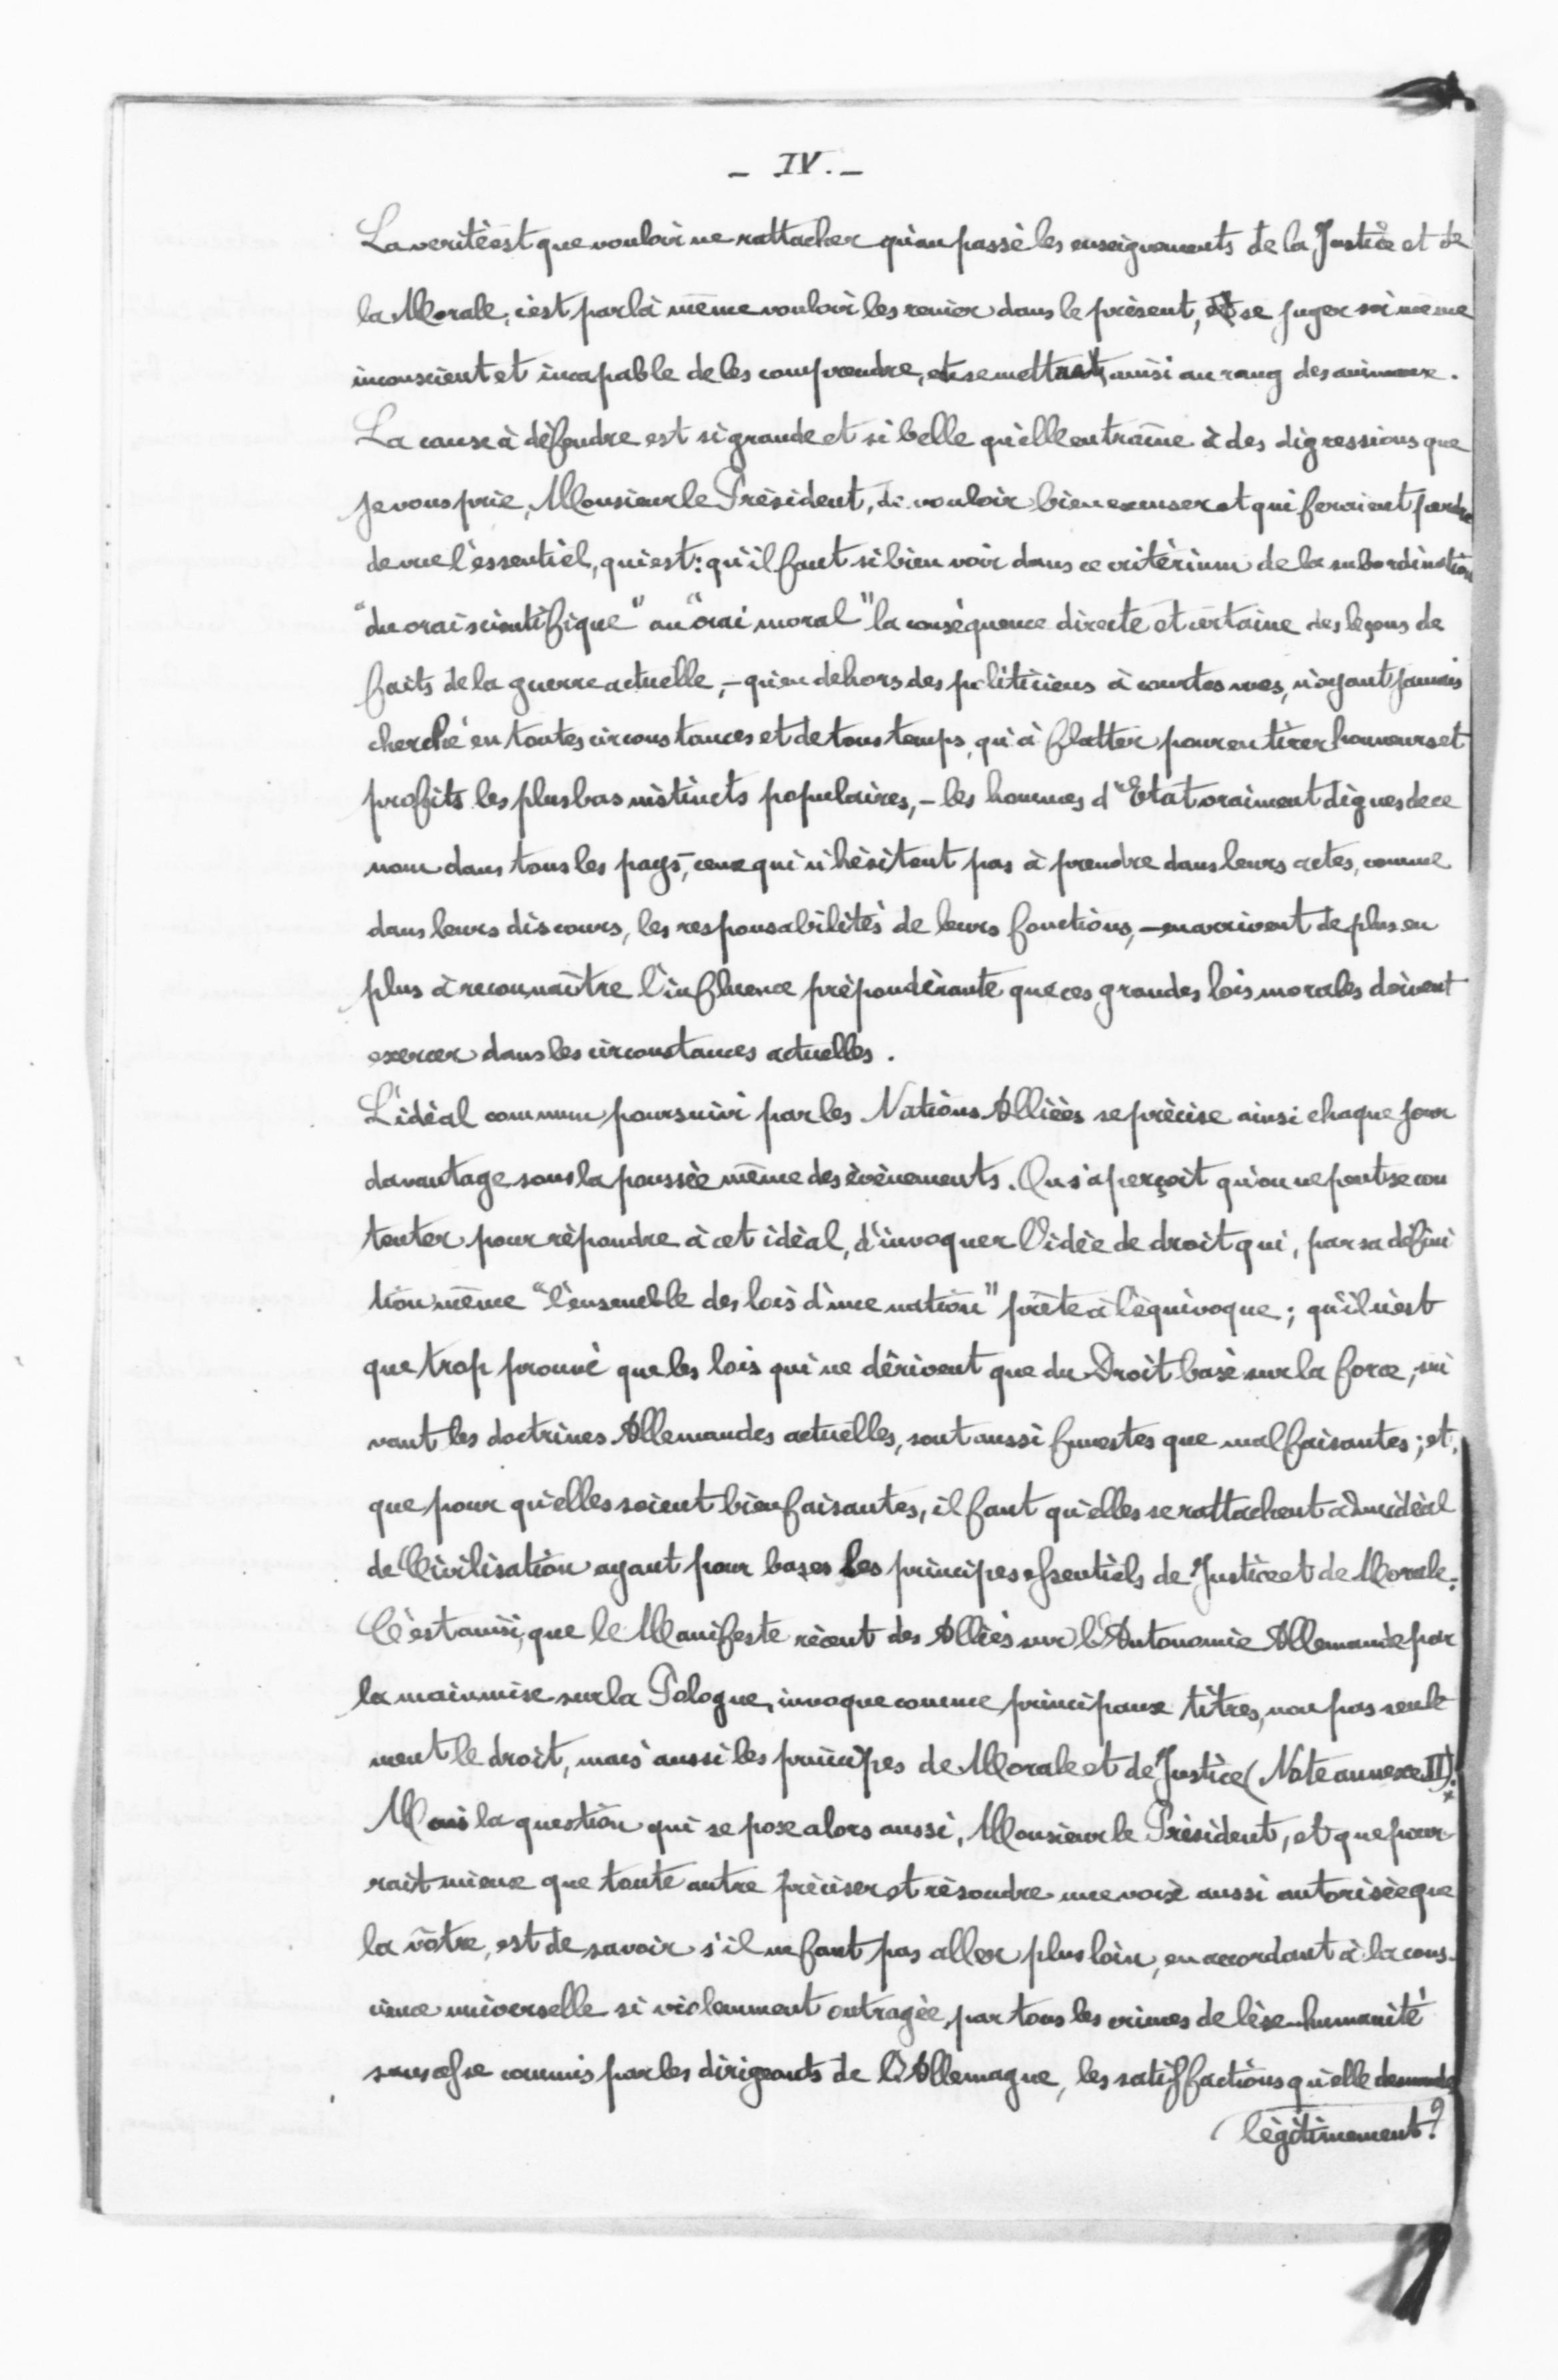 - IV. -
La verité est que vouloir ne rattacher qu'au passé les enseignements de la Justice et de
la Morale, c'est par là même vouloir les renier dans le présent, et se juger soi même
inconscient et incapable de les comprendre, en se mettant ainsi au rang des animaux.
La cause à défendre est si grande et si belle qu'elle entraîne à des digressions que
je vous prie, Monsieur le Président, de vouloir bien excuser et qui feraient perdre
de vue l'essentiel, qui est: qu'il faut si bien voir dans ce critérium de la subordination
"du vrai scientifique" au "vrai moral" la conséquence directe et certaine des leçons de
faits de la guerre actuelle, - qu'en dehors des politiciens à courtes vues, n'ayant jamais
cherché en toutes circonstances et de tous temps, qu'à flatter pour en tirer honneurs et
profits les plus bas instincts populaires, - les hommes d'Etat vraiment dignes de ce
nom dans tous les pays, ceux qui n'hésitent pas à prendre dans leurs actes, comme
dans leurs discours, les responsabilités de leurs fonctions, - en arrivent de plus en
plus à reconnaître l'influence prépondérante que ces grandes lois morales doivent
exercer dans les circonstances actuelles.
L'idéal commun poursuivi par les Nations Alliées se précise ainsi chaque jour
davantage sous la poussée même des évènements. On s'aperçoit qu'on ne peut se con
tenter pour répondre à cet idéal, d'invoquer l'idée de droit qui, par sa défini
tion même "l'ensemble des lois d'une nation" prête à l'équivoque; qu'il n'est
que trop prouvé que les lois qui ne dérivent que du Droit basé sur la force, sui
vant les doctrines Allemandes actuelles, sont aussi funestes que malfaisantes; et,
que pour qu'elles soient bienfaisantes, il faut qu'elles se rattachent à un idéal
de Civilisation ayant pour bases les principes essentiels de Justice et de Morale.
C'est ainsi, que le Manifeste récent des Alliés sur l'Autonomie Allemande par
la mainmise sur la Pologne, invoque comme principaux titres, non pas seule
ment le droit, mais aussi les principes de Morale et de Justice (Note annexe II).
Mais la question qui se pose alors aussi, Monsieur le Président, et que pour-
rait mieux que toute autre préciser et résoudre une voix aussi autorisée que
la vôtre, est de savoir s'il ne faut pas aller plus loin, en accordant à la cons-
cience universelle si violemment outragée, par tous les crimes de lèse-humanité
sans cesse commis par les dirigeants de l'Allemagne, les satisfactions qu'elle demande
légitimement?